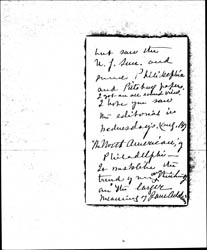 but saw the
N.J. Sun. and
some Philadelphia
and Pittsburg papers.
I got an all around view.
I hope you saw
the editorial in
Wednesday's, (Aug. 
The North American, of
Philadelphia—
It matches the
trend of my thinking
on the larger
meaning of Jane Addams